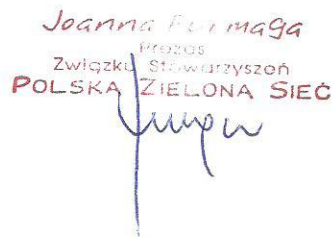 Joanna Furmaga
Prezes
Związku Stowarzyszeń
POLSKA ZIELONA SIEĆ